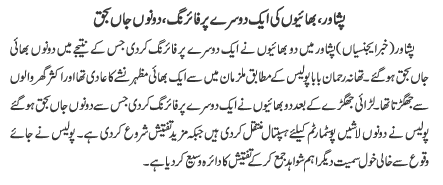 پشاور، بھائیوں کی ایک دوسرے پر فائرنگ، دونوں جاں بحق
پشاور (خبر ایجنسیاں) پشاور میں دو بھائیوں نے ایک دوسرے پر فائرنگ کردی جس کے نتیجے میں دونوں بھائی
جاں بحق ہوگئے۔ تھانہ رحمان بابا پولیس کے مطابق ملزمان میں سے ایک بھائی مظہر نشے کا عادی تھا اور اکثر گھر والوں
سے جھگڑتا تھا۔ لڑائی جھگڑے کے بعد دو بھائیوں نے ایک دوسرے پر فائرنگ کردی جس سے دونوں جاں بحق ہوگئے
پولیس نے دونوں لاشیں پوسٹمارٹم کیلئے ہسپتال منتقل کردی ہیں جبکہ مزید تفتیش شروع کردی ہے۔ پولیس نے جائے
وقوع سے خالی خول سمیت دیگر اہم شواہد جمع کرکے تفتیش کا دائرہ وسیع کردیا ہے۔